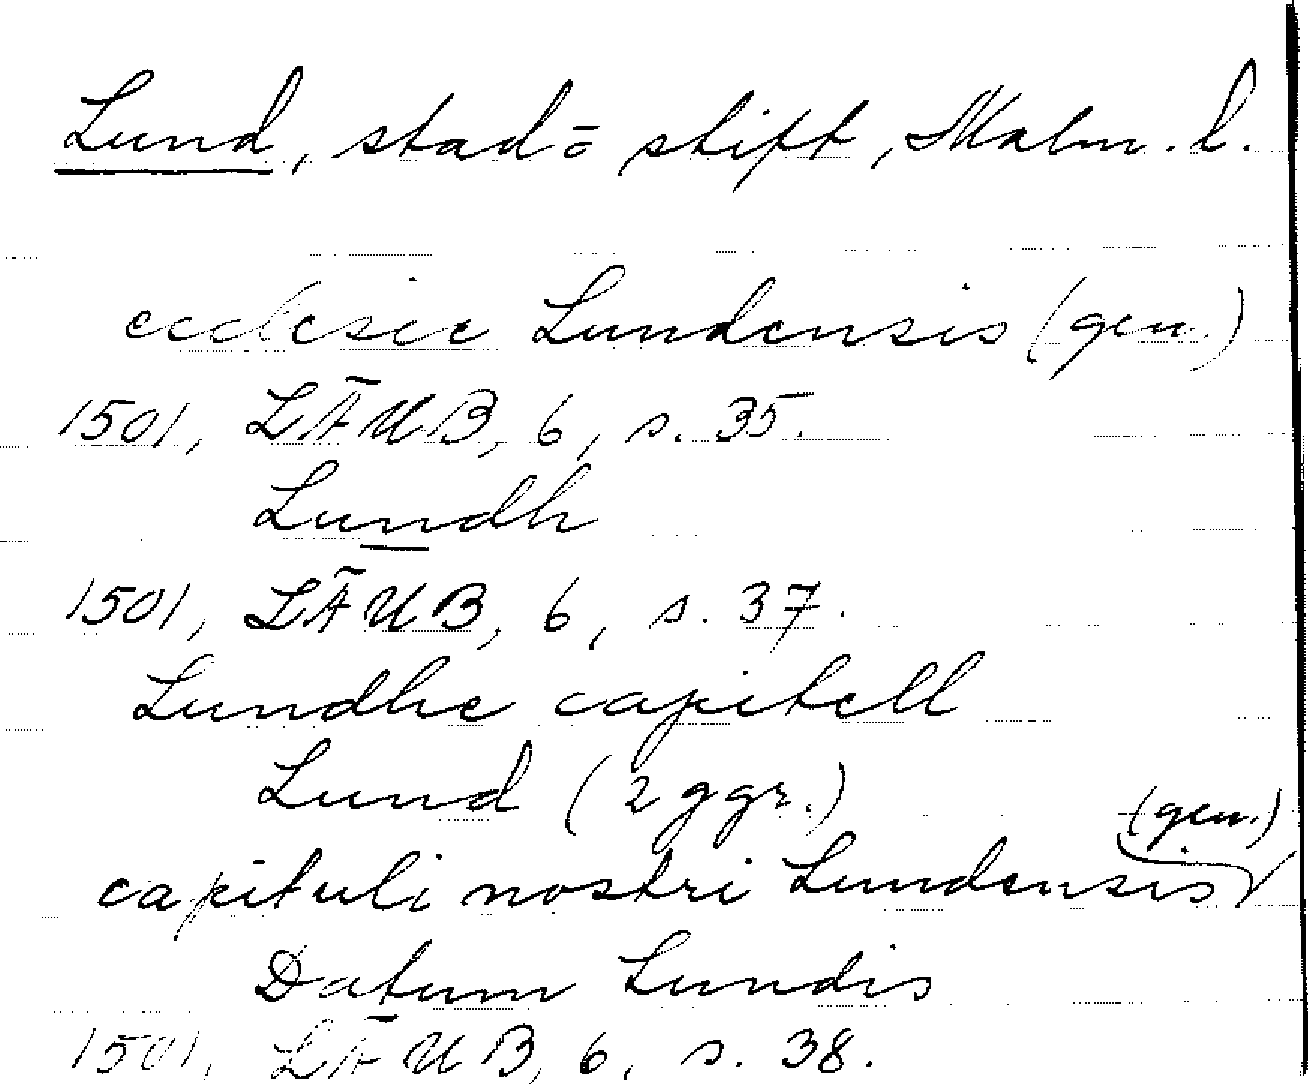 Lund, stad= stift, Malm. l.
ecclesie Lundensis (gen.)
1501, LÄUB, 6, s. 35.
Lundh
1501, LÄUB, 6, s. 37.
Lundhe capitell
Lund (2 ggr.)
capituli nostri Lundensis (gen.)
Datum Lundis
1501, LÄUB, 6, s. 38.